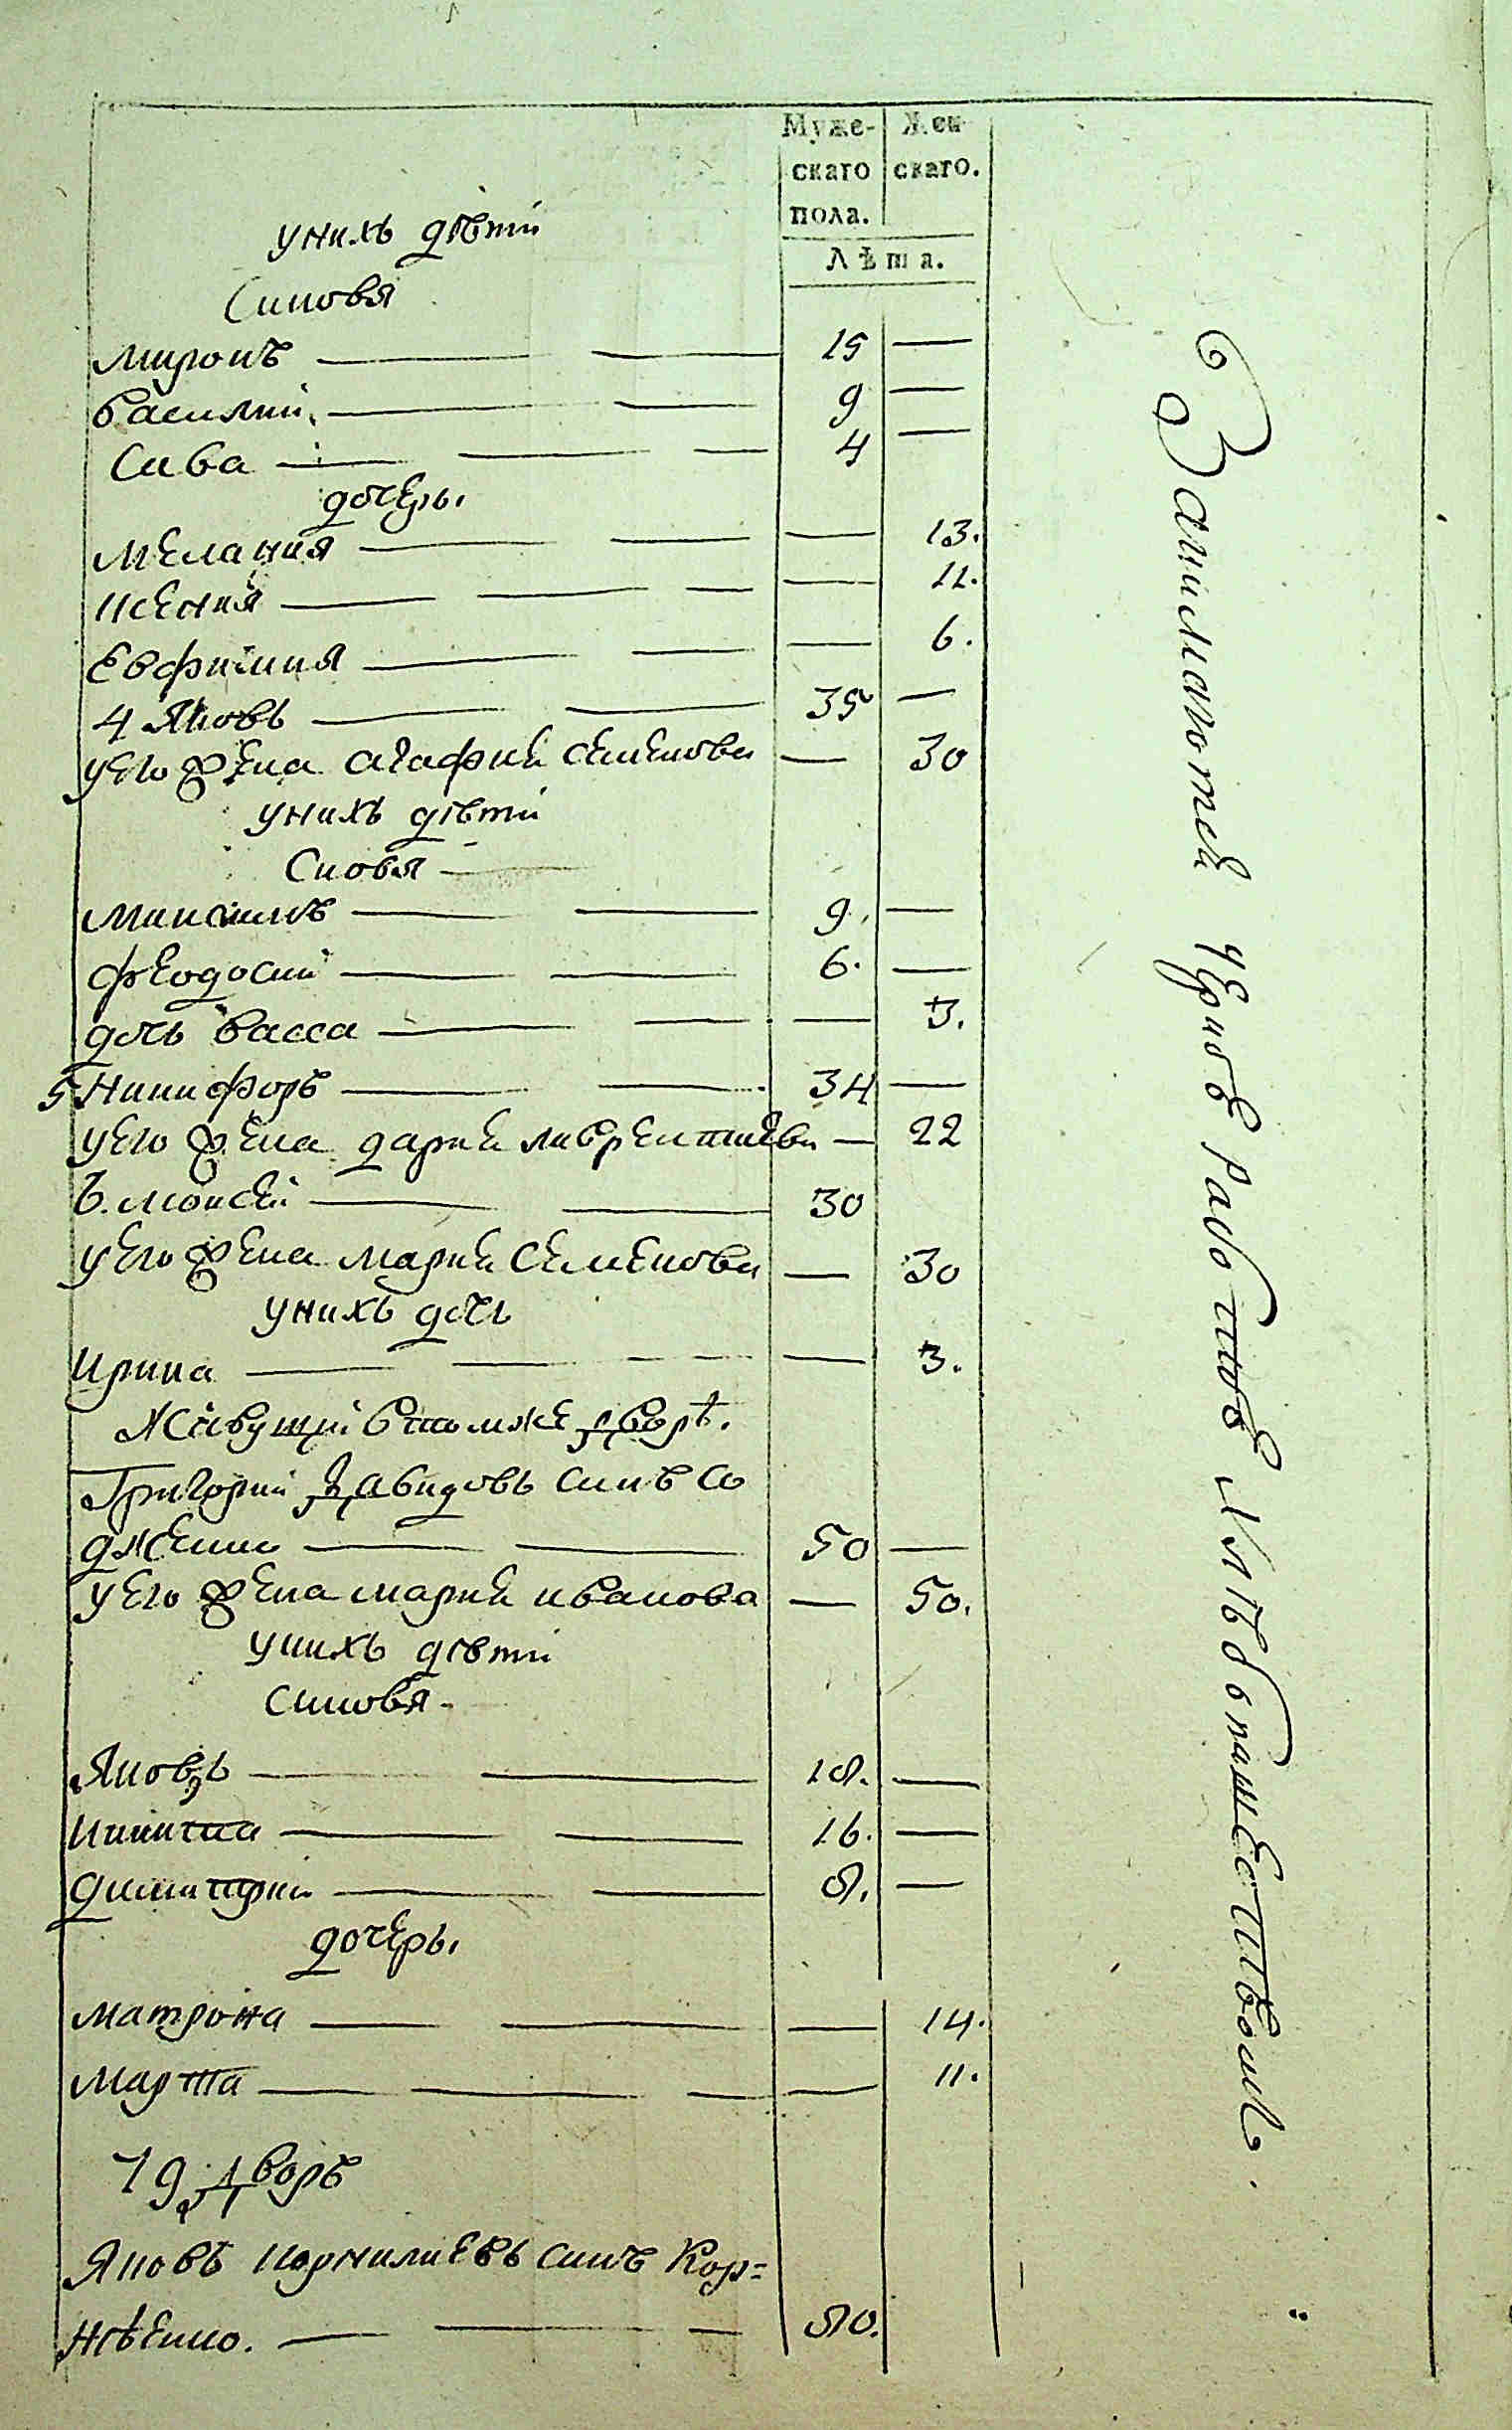 Муже- Жен
скаго скаго.
пола.
Лѣта.
унихъ дѣти
Синовя
Миронъ 15
Василий 9
Сава 4
дочеры
Мелания 13.
Ксения 11.
Евфимия 6.
4 Яковъ 35
уего жена агафия семенова 30
унихъ дѣти
Сновя
Максимъ 9.
Феодосий 6.
дочь Васса 3.
5 Никифоръ 34
уего жена дария лаврентиева 22
6. моисей 30
уего жена мария Семенова 30
унихъ дочь
Ирина 3.
Живущии втомже дворѣ.
Григорий Давидовъ синъ Со
дженко 50
уего жена мария иванова 50.
унихъ дѣти
синовя
Яковъ 18.
Никита 16.
димитрий 8.
дочеры
Матрона 14.
Марта 11.
19 дворъ
Яковъ Корнилиевъ синъ Кор=
нѣенко. 80.
Занимаются чернов работов и хлѣбопашествомъ.